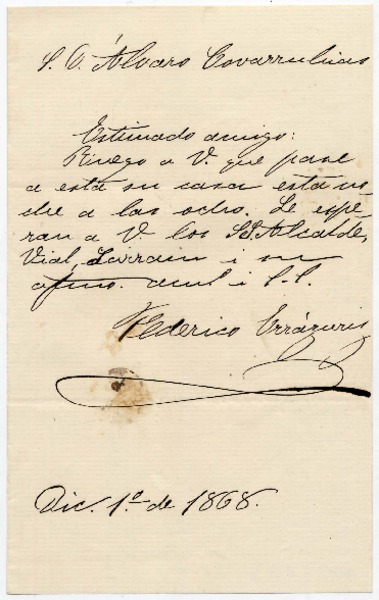 S. D. Álvaro Covarrubias
Estimado amigo:
Ruego a V. que pase
a esta su casa esta no
che a las ocho. Le espe
ran a V. los SS. Alcalde,
Vial, Larrain i su
afmo. aml i S. S.
Federico Errázuriz
Dic. 1.º de 1868.